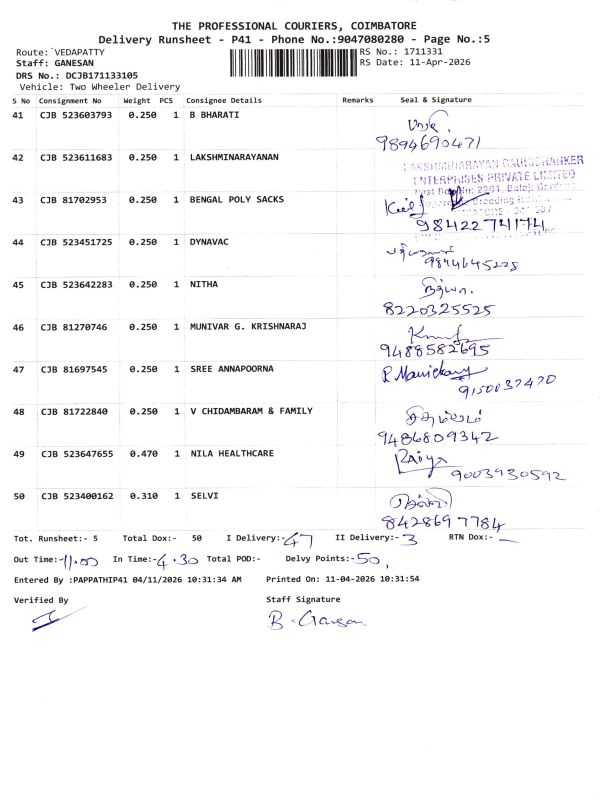 THE PROFESSIONAL COURIERS, COIMBATORE
Delivery Runsheet - P41 - Phone No.:9047080280 - Page No.:5
Route: VEDAPATTY RS No.: 1711331
Staff: GANESAN RS Date: 11-Apr-2026
DRS No.: DCJB171133105
Vehicle: Two Wheeler Delivery
S No Consignment No Weight PCS Consignee Details Remarks Seal & Signature
41 CJB 523603793 0.250 1 B BHARATI
9894690471
42 CJB 523611683 0.250 1 LAKSHMINARAYANAN
ENTERPRISES PRIVATE LIMITED
43 CJB 81702953 0.250 1 BENGAL POLY SACKS
9842274174
44 CJB 523451725 0.250 1 DYNAVAC
9894645228
45 CJB 523642283 0.250 1 NITHA
நித்யா.
8220325525
46 CJB 81270746 0.250 1 MUNIVAR G. KRISHNARAJ
9488582695
47 CJB 81697545 0.250 1 SREE ANNAPOORNA
48 CJB 81722840 0.250 1 V CHIDAMBARAM & FAMILY
9486809342
49 CJB 523647655 0.470 1 NILA HEALTHCARE
9003930592
50 CJB 523400162 0.310 1 SELVI
8428697784
Tot. Runsheet:- 5 Total Dox:- 50 I Delivery:- 47 II Delivery:- 3 RTN Dox:- —
Out Time:- 11.00 In Time:- 4.30 Total POD:- Delvy Points:- 50
Entered By :PAPPATHIP41 04/11/2026 10:31:34 AM Printed On: 11-04-2026 10:31:54
Verified By Staff Signature